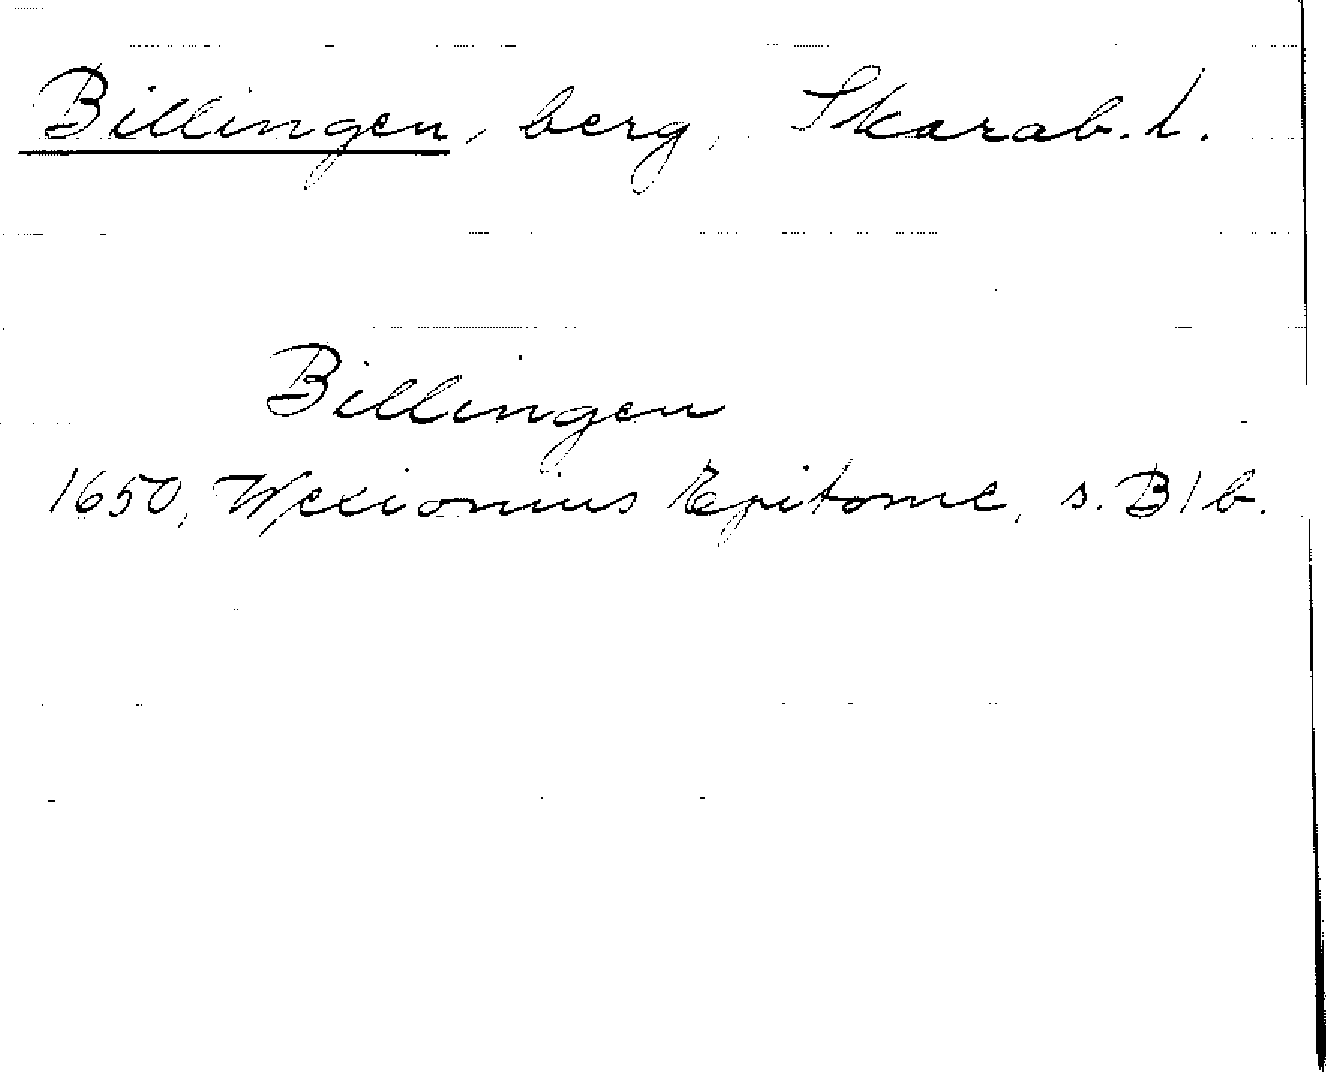 Billingen, berg, Skarab. l.
Billingen
1650, Wexionius Epitome, s. B1b.